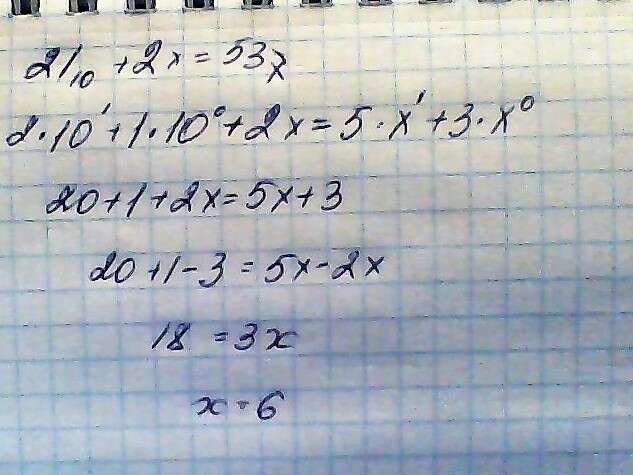 21₁₀ + 2x = 53ₓ
2·10¹+1·10⁰+2x = 5·x¹+3·x⁰
20+1+2x=5x+3
20+1-3=5x-2x
18 = 3x
x = 6